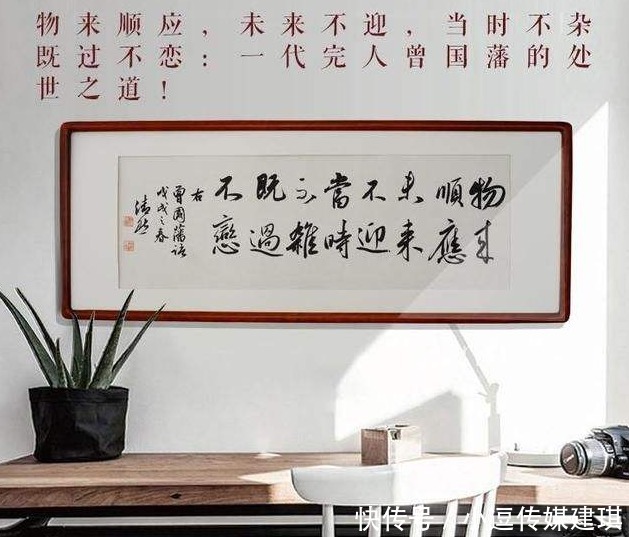 物来顺应，未来不迎，当时不杂
既过不恋：一代完人曾国藩的处
世之道！
物来
順應
未来
不迎
當時
不雜
既過
不戀
右
曾國藩語
戊戌之春
快传号 / 小逗传媒建琪